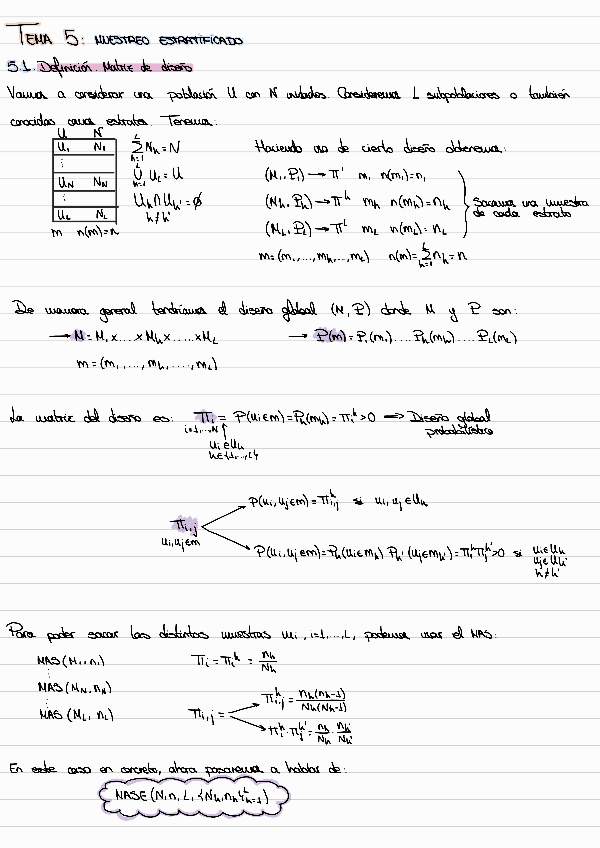 TEMA 5: MUESTREO ESTRATIFICADO
5.1. Definición. Matriz de diseño
Vamos a considerar una población U con N unidades. Consideremos L subpoblaciones o también
conocidas como estratos. Tenemos:
U N
U₁ N₁
⋮
U_N N_N
⋮
U_L N_L
m n(m)=n
∑_{h=1}^{L} N_h = N
⋃_{h=1}^{L} U_L = U
U_h ∩ U_h' = ∅
h≠h'
Haciendo uso de cierto diseño obtenemos:
(M₁, P₁) → Π¹ m₁ n(m₁)=n₁
(M_h, P_h) → Π^h m_h n(m_h)=n_h
(M_L, P_L) → Π^L m_L n(m_L)=n_L
Sacamos una muestra
de cada estrato
m=(m₁,...,m_h,...,m_L) n(m)=∑_{h=1}^{L} n_h = n
De manera general tendríamos el diseño global (M, P) donde M y P son:
→ M = M₁ x ... x M_h x ... x M_L → P(m) = P₁(m₁) ... P_h(m_h) ... P_L(m_L)
m = (m₁, ..., m_h, ..., m_L)
La matriz del diseño es: Π_i = P(u_i∈m) = P_h(m_h) = Π_i^h > 0 ⟹ Diseño global
probabilístico
i=1,...,N ↑
u_i∈U_h
h∈{1,...,L}
P(u_i,u_j∈m) = Π_{i,j}^h si u_i,u_j∈U_h
Π_{i,j}
u_i,u_j∈m
P(u_i,u_j∈m) = P_h(u_i∈m_h) P_h'(u_j∈m_h') = Π_i^h Π_j^h' > 0 si u_i∈U_h
u_j∈U_h'
h≠h'
Para poder sacar las distintas muestras m_i, i=1,...,L, podemos usar el MAS:
MAS(M₁, n₁) Π_i = Π_i^h = n_h/N_h
⋮
MAS(M_N, n_N)
⋮
MAS(M_L, n_L)
Π_{i,j} =
Π_{i,j}^h = n_h(n_h-1)/N_h(N_h-1)
Π_i^h · Π_j^h' = n_h/N_h · n_h'/N_h'
En este caso en concreto, ahora pasaremos a hablar de:
MASE(N, n, L, {N_h, n_h}_{h=1}^{L})